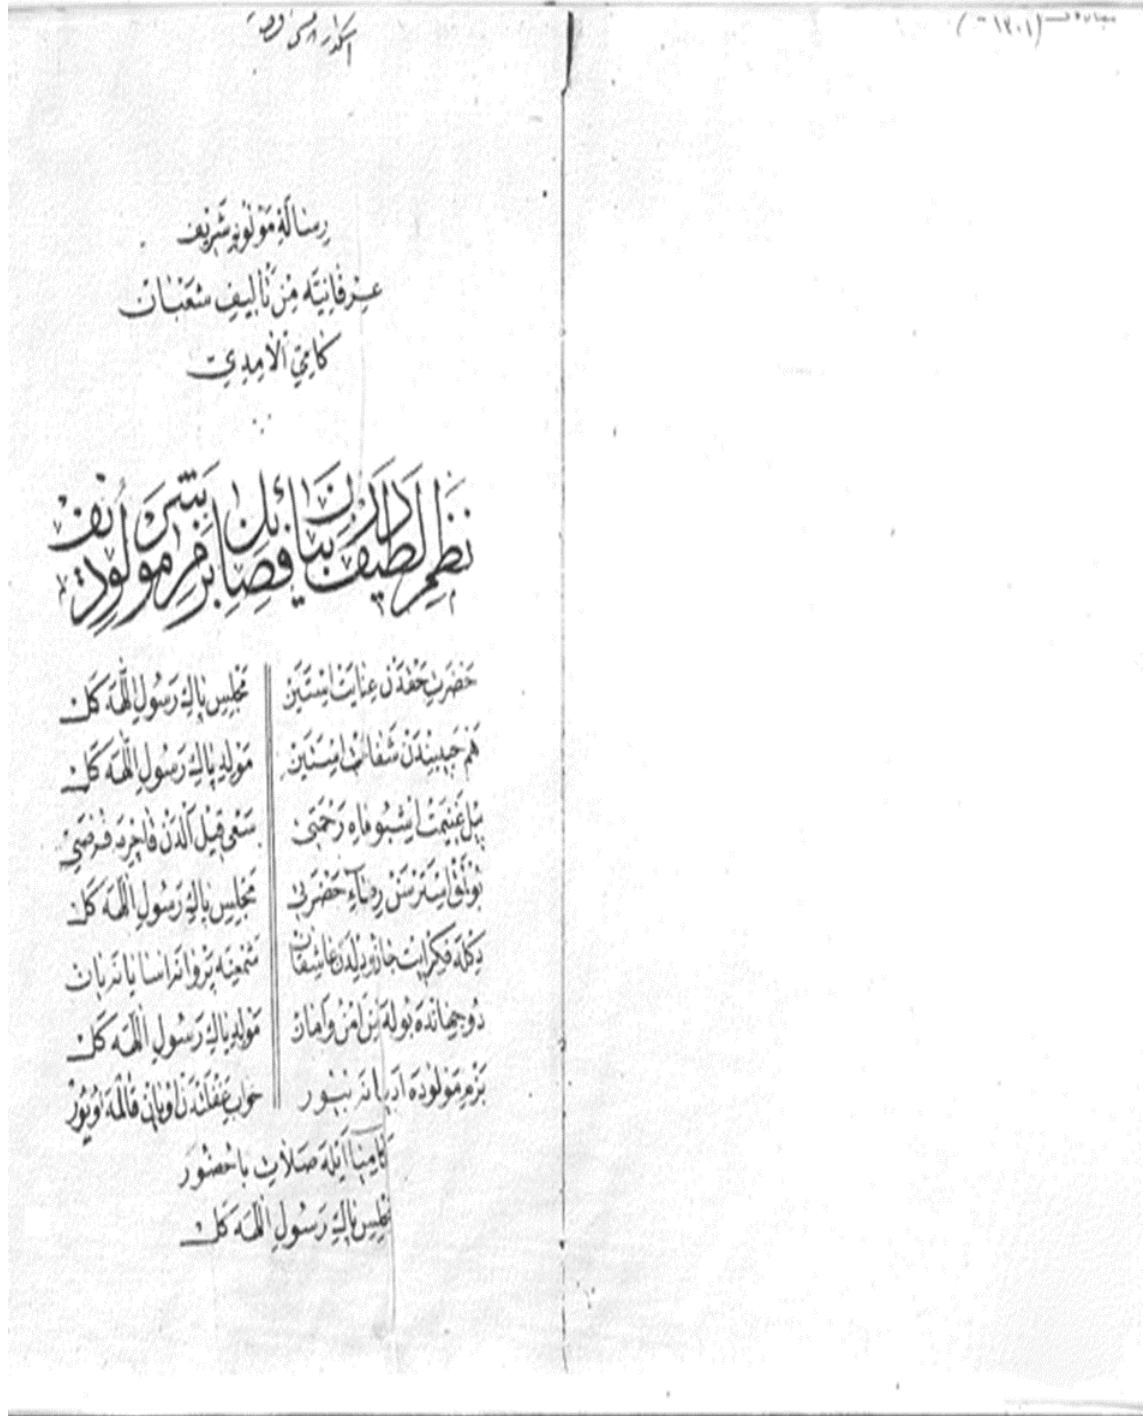 رِسَالَهْ مَوْلُودِ شَرِيفِ
عِرْفَانِيَّه مِنْ تَأْلِيفِ شَعْبَانْ
كَامِيِّ الْآمِدِيّ
نَظْمِ لَطِيفْ
بَزْمِ مَوْلُودِ
حَضْرَتِ حَقْدَنْ عِنَايَتْ اِسْتَيَنْ مَجْلِسِ پَاكِ رَسُولِ اللّٰهَه كَلْ
هَمْ حَبِيبِنْدَنْ شَفَاعَتْ اِسْتَيَنْ مَوْلِدِ پَاكِ رَسُولِ اللّٰهَه كَلْ
بِيلْ غَنِيمَتْ اِيشْبُو مَاهِ رَحْمَتِى سَعْى قِيلْ اَلْدَنْ قَاچِرْمَه فُرْصَتِى
بُولْمَقْ اِسْتَرْسَنْ رِضَاءِ حَضْرَتِى مَجْلِسِ پَاكِ رَسُولِ اللّٰهَه كَلْ
دِكْلَه فِكْرْ اِيتْ جَانُ و دِلْدَنْ عَاشِقَانْ شَمْعِنَه پَرْوَانَه آسَا يَانَه يَانْ
دُو جِهَانْدَه بُولَه سِنْ اَمْنُ و اَمَانْ مَوْلِدِ پَاكِ رَسُولِ اللّٰهَه كَلْ
بَزْمِ مَوْلُودَه خَوَابِ غَفْلَتْدَنْ اُويَانْ قَالْمَه اُويُورْ
كَامِيَا اَيْلَه صَلَاتِ بَا حُضُورْ
مَجْلِسِ پَاكِ رَسُولِ اللّٰهَه كَلْ